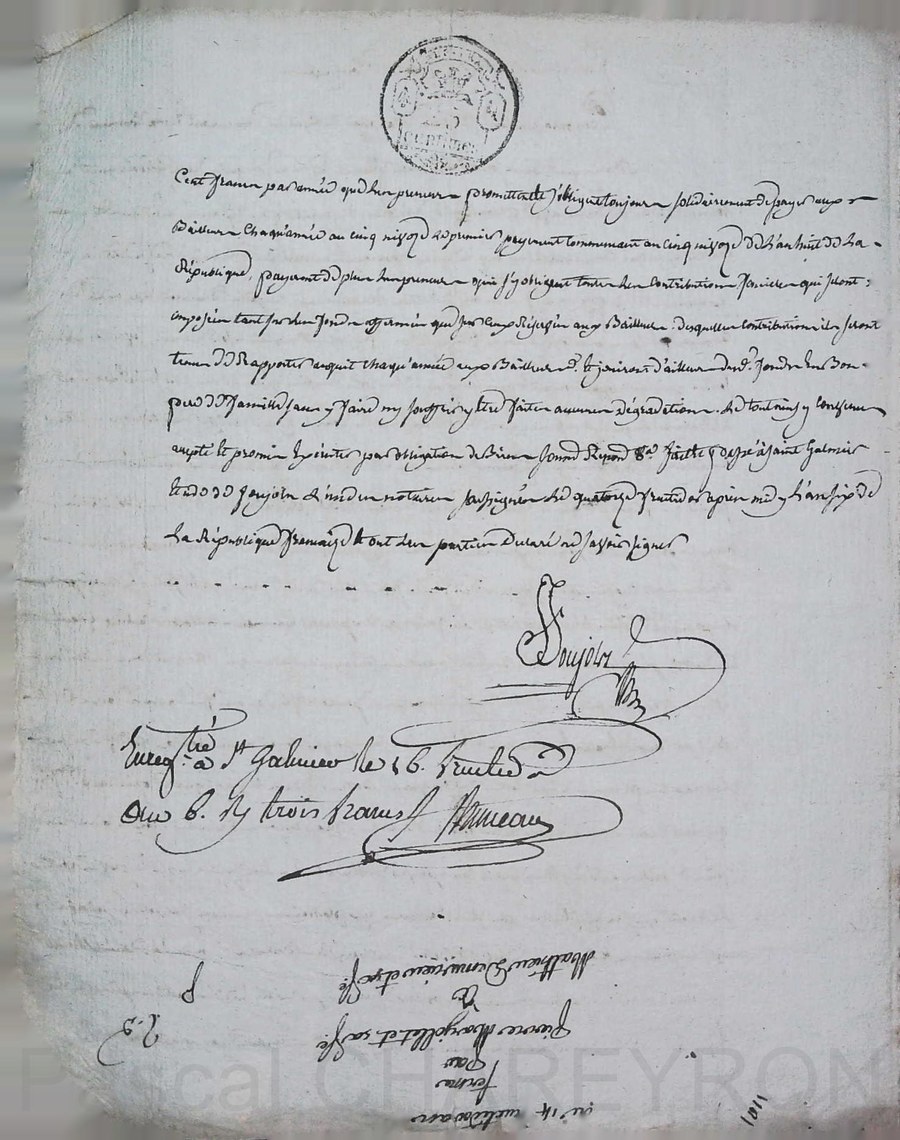 25
CENTIMES
Cent francs par année que les preneurs promettent et s'obligent toujours solidairement de payer aux
Bailleurs chaqu'année au cinq nivose le premier payement commencant au cinq nivose de l'an huit de la
République, payeront de plus les preneurs qui s'y obligent toutes les contributions foncières qui seront
imposées tant sur les fonds affermés que sur ceux Réservés aux Bailleurs desquelles contributions ils seront
tenus de Rapporter acquit chaqu'année aux Bailleurs et jouiront d'ailleurs desd. fonds en Bons
pères de famille sans y faire ny souffrir y être faites aucunes dégradations. Le tout ainsy convenu
accepté et promis Exécuter par obligation de Biens soumis Renond &a. fait et passé à Saint Galmier
étude de Joujols l'un des notaires soussignés le quatorze fructidor après midy l'an six de
la République française et ont les parties Declaré ne savoir signer
Joujols
Enregtré à St Galmier le 16. fructidor
an 6. Ry trois francs
Mathieu et sa fe.
&
Pierre Marjollet et sa fe.
par
ferme
1101
Pascal CHAREYRON